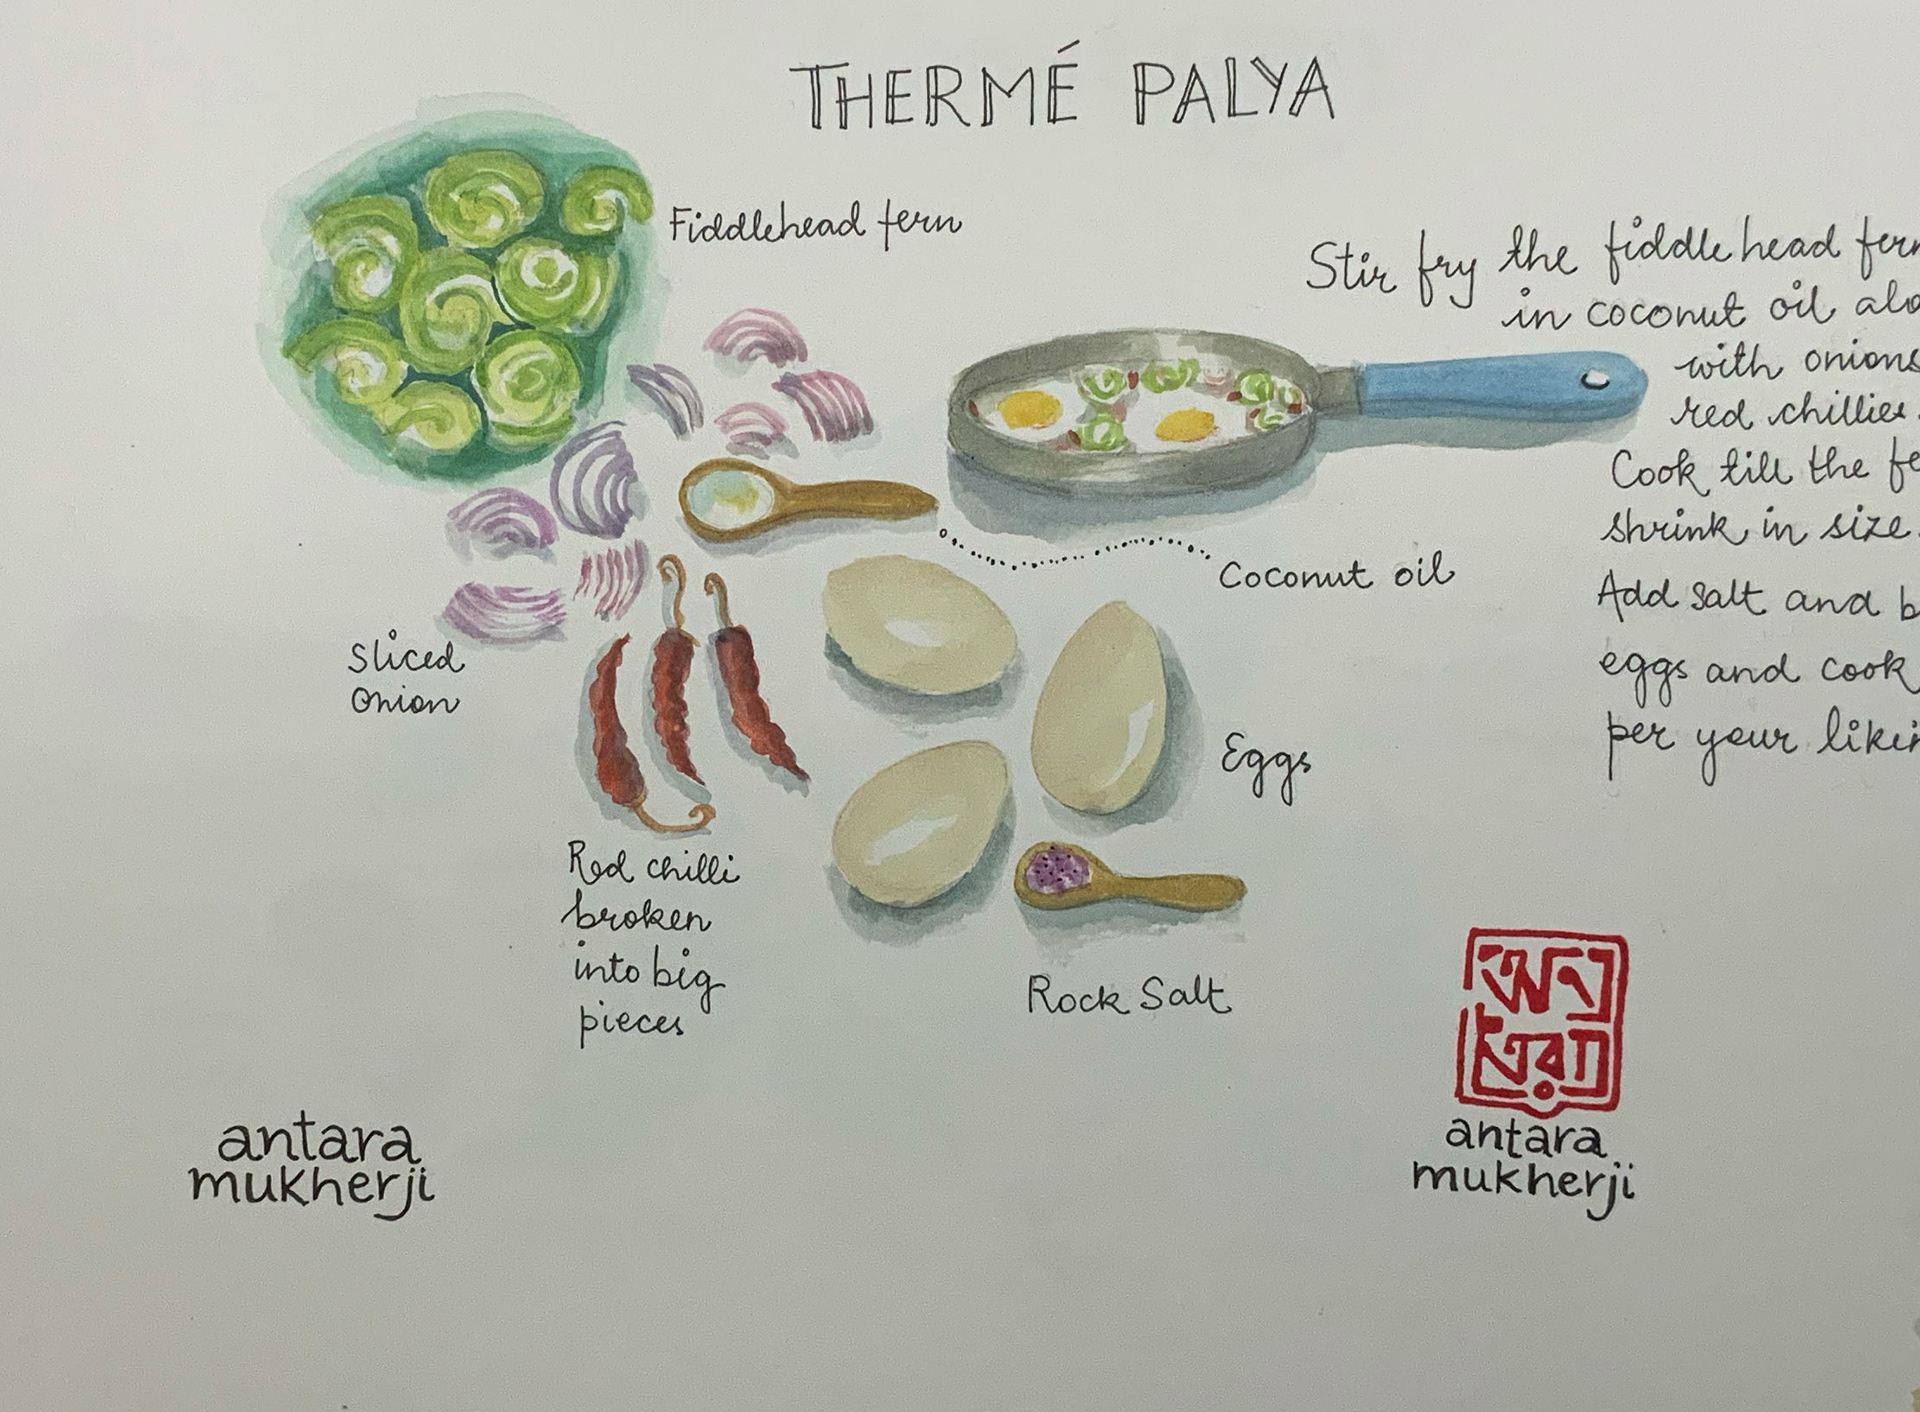 THERMÉ PALYA
Fiddlehead fern
Stir fry the fiddlehead fern
in coconut oil alo
with onions
red chillies
Cook till the fe
shrink in size.
Add salt and b
eggs and cook
per your likin
Coconut oil
Sliced
onion
Eggs
Red chilli
broken
into big
pieces
Rock Salt
অন্
তরা
antara
mukherji
antara
mukherji